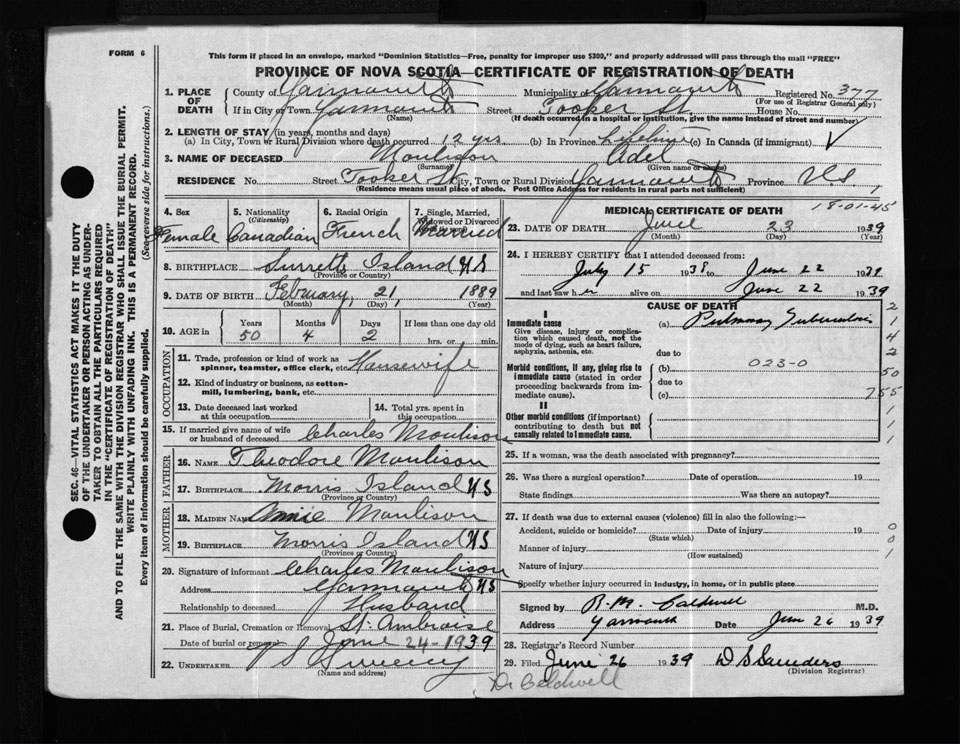 FORM 6
This form if placed in an envelope, marked "Dominion Statistics—Free, penalty for improper use $300," and properly addressed will pass through the mail "FREE"
PROVINCE OF NOVA SCOTIA—CERTIFICATE OF REGISTRATION OF DEATH
1. PLACE OF DEATH
County of Yarmouth Municipality of Yarmouth Registered No. 377
(For use of Registrar General only)
If in City or Town Yarmouth Street Tooker St. House No.
(Name) (If death occurred in a hospital or institution, give the name instead of street and number)
2. LENGTH OF STAY (in years, months and days)
(a) In City, Town or Rural Division where death occurred 12 yrs. (b) In Province Lifetime (c) In Canada (if immigrant)
3. NAME OF DECEASED Moulison Adel
(Surname) (Given name or names)
RESIDENCE No. Street Tooker St. City, Town or Rural Division Yarmouth Province N.S.
(Residence means usual place of abode. Post Office Address for residents in rural parts not sufficient)
4. Sex Female
5. Nationality (Citizenship) Canadian
6. Racial Origin French
7. Single, Married, Widowed or Divorced Married
8. BIRTHPLACE Surrette Island N S
(Province or Country)
9. DATE OF BIRTH February, 21, 1889
(Month) (Day) (Year)
10. AGE in Years Months Days If less than one day old
50 4 2 hrs. or min.
OCCUPATION
11. Trade, profession or kind of work as spinner, teamster, office clerk, etc. Housewife
12. Kind of industry or business, as cotton-mill, lumbering, bank, etc.
13. Date deceased last worked at this occupation
14. Total yrs. spent in this occupation
15. If married give name of wife or husband of deceased Charles Moulison
FATHER
16. NAME Theodore Moulison
17. BIRTHPLACE Morris Island N S
(Province or Country)
MOTHER
18. MAIDEN NAME Annie Moulison
19. BIRTHPLACE Morris Island N S
(Province or Country)
20. Signature of informant Charles Moulison
Address Yarmouth N S
Relationship to deceased Husband
21. Place of Burial, Cremation or Removal St. Ambroise
Date of burial or removal June 24-1939
22. UNDERTAKER Sweeny
(Name and address)
Dr Caldwell
MEDICAL CERTIFICATE OF DEATH
18-01-45
23. DATE OF DEATH June 23 1939
(Month) (Day) (Year)
24. I HEREBY CERTIFY that I attended deceased from:
July 15 1938 to June 22 1939
and last saw her alive on June 22 1939
CAUSE OF DEATH
I
Immediate cause
Give disease, injury or complication which caused death, not the mode of dying, such as heart failure, asphyxia, asthenia, etc.
(a) Pulmonary Tuberculosis
due to
Morbid conditions, if any, giving rise to immediate cause (stated in order proceeding backwards from immediate cause).
(b) 023-0
due to
(c)
II
Other morbid conditions (if important) contributing to death but not causally related to immediate cause.
2
1
4
2
50
755
1
1
1
25. If a woman, was the death associated with pregnancy?
26. Was there a surgical operation? Date of operation 19
State findings Was there an autopsy?
27. If death was due to external causes (violence) fill in also the following:—
Accident, suicide or homicide? Date of injury 19
(State which)
Manner of injury
(How sustained)
Nature of injury
Specify whether injury occurred in industry, in home, or in public place
0
0
1
Signed by R.M. Caldwell M.D.
Address Yarmouth Date Jun 26 1939
28. Registrar's Record Number
29. Filed June 26 1939 D S Saunders
(Division Registrar)
SEC. 46—VITAL STATISTICS ACT MAKES IT THE DUTY
OF THE UNDERTAKER OR PERSON ACTING AS UNDERTAKER TO OBTAIN ALL THE PARTICULARS REQUIRED
IN THE "CERTIFICATE OF REGISTRATION OF DEATH"
AND TO FILE THE SAME WITH THE DIVISION REGISTRAR WHO SHALL ISSUE THE BURIAL PERMIT.
WRITE PLAINLY WITH UNFADING INK. THIS IS A PERMANENT RECORD.
Every item of information should be carefully supplied. (See reverse side for instructions.)